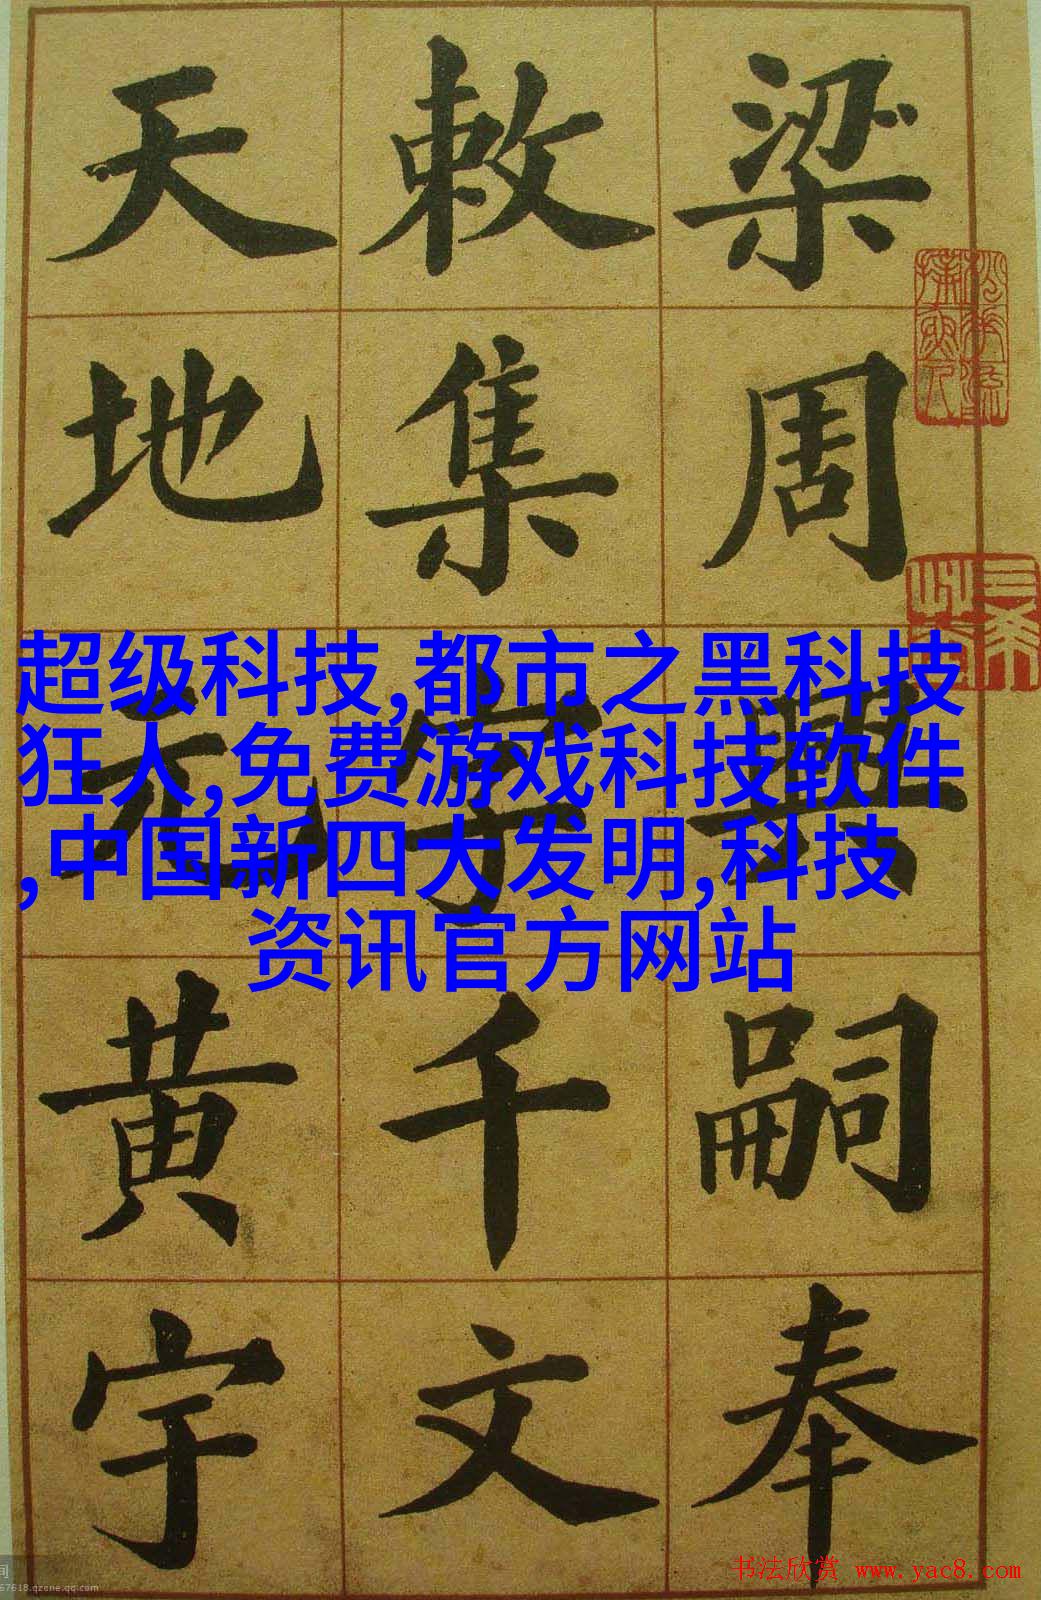 梁周興嗣奉
敕集字千文
天地元黄宇
超级科技,都市之黑科技
狂人,免费游戏科技软件
,中国新四大发明,科技
资讯官方网站
书法欣赏 www.yac8.com
67618.qzone.qq.com